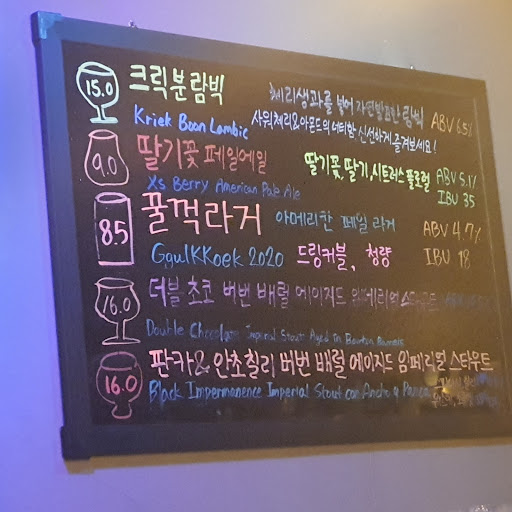 15.0 크릭분 람빅
체리생과를 넣어 자연발효한 람빅 ABV 6.5%
Kriek Boon Lambic
사워체리&아몬드의 더티함 신선하게 즐겨보세요!
9.0 딸기꽃 페일에일
딸기꽃, 딸기, 시트러스 플로럴 ABV 5.1%
Xs Berry American Pale Ale
IBU 35
8.5 꿀꺽라거 아메리칸 페일 라거 ABV 4.7%
GgulKKoek 2020 드링커블, 청량 IBU 18
16.0 더블 초코 버번 배럴 에이지드 임페리얼스타우트
Double Chocolate Imperial Stout Aged in Bourbon Barrels
16.0 판카&안초칠리 버번 배럴 에이지드 임페리얼 스타우트
Black Impermanence Imperial Stout con Ancho y